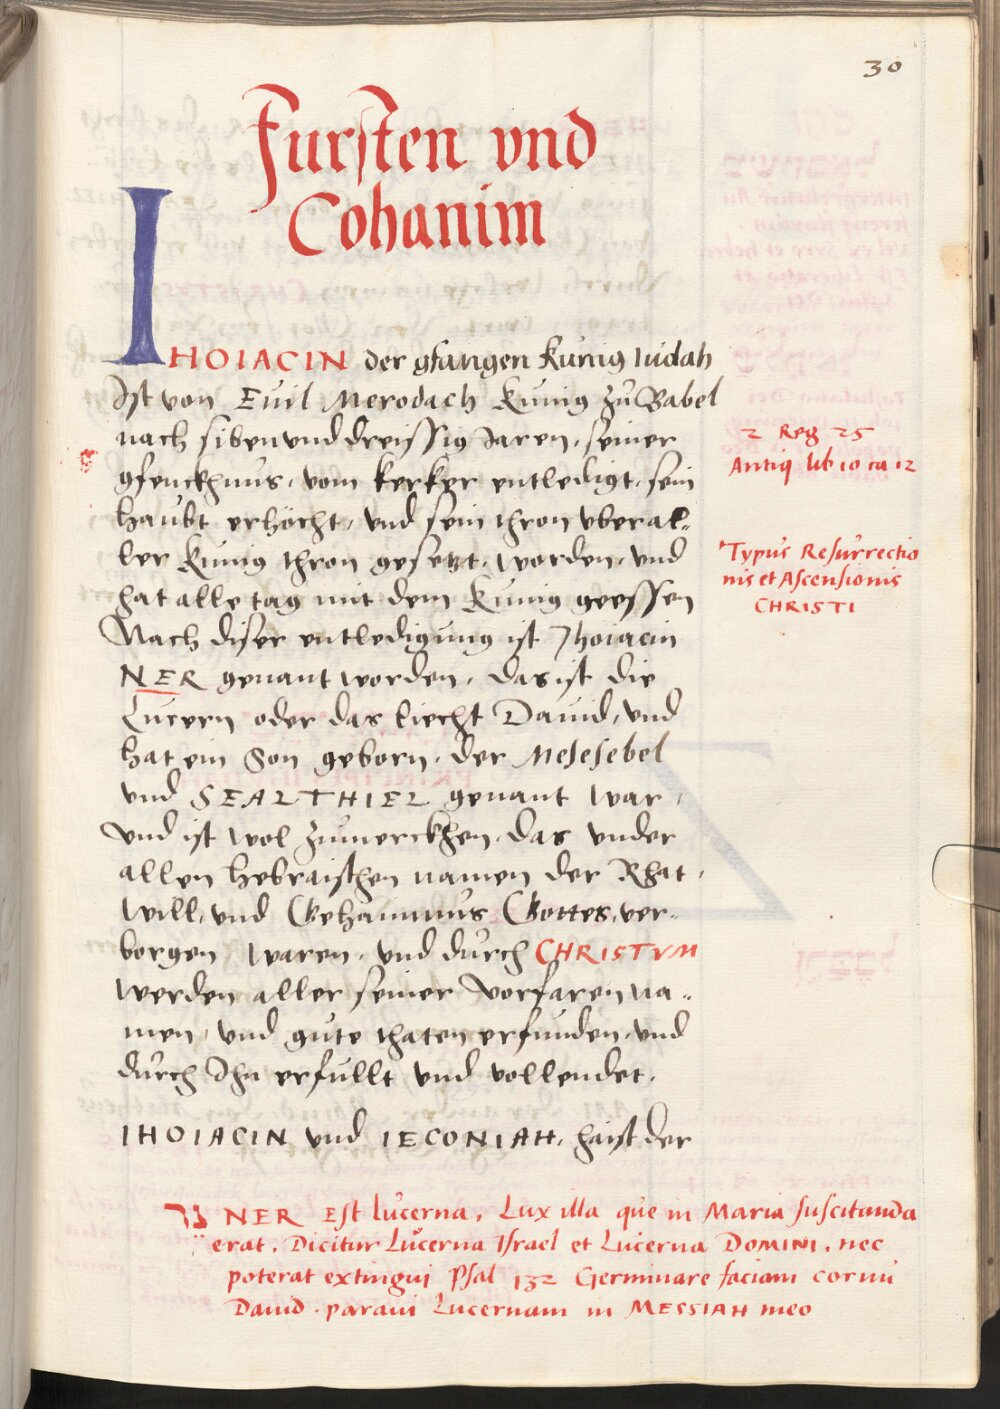 30
Fursten vnd
Cohanim
IHOIACIN der gfangen Kunig Iudah
Ist von Euil Merodach Kunig zu Babel
nach siben vnd dreissig Jaren, seiner
gfenckhnus, vom kerker entledigt, sein
haubt erhöcht, vnd sein thron vberal-
ler Kunig thron gesetzt, worden, vnd
hat alle tag mit dem Kunig geessen
Nach diser entledigung ist Jhoiacin
NER genant worden, das ist die
Lucern oder das liecht Dauid, vnd
hat ein Son geborn, der Mesesebel
vnd SEALTHIEL genant war,
vnd ist wol zumerckhen, das vnder
allen hebraischen namen der Rhat,
will, vnd Gehaimnus Gottes, ver-
borgen waren, vnd durch CHRISTVM
werden aller seiner vorfaren na-
men, vnd gute thaten erfunden, vnd
durch Jhn erfullt vnd vollendet.
IHOIACIN vnd IECONIAH, haist der
2 Reg 25
Antiq lib 10 ca 12
Typus Resurrectio
nis et Ascensionis
CHRISTI
נר NER Est lucerna, Lux illa que in Maria suscitanda
erat. Dicitur Lucerna Israel et Lucerna DOMINI, nec
poterat extingui Psal 132 Germinare faciam cornu
Dauid. paraui Lucernam in MESSIAH meo